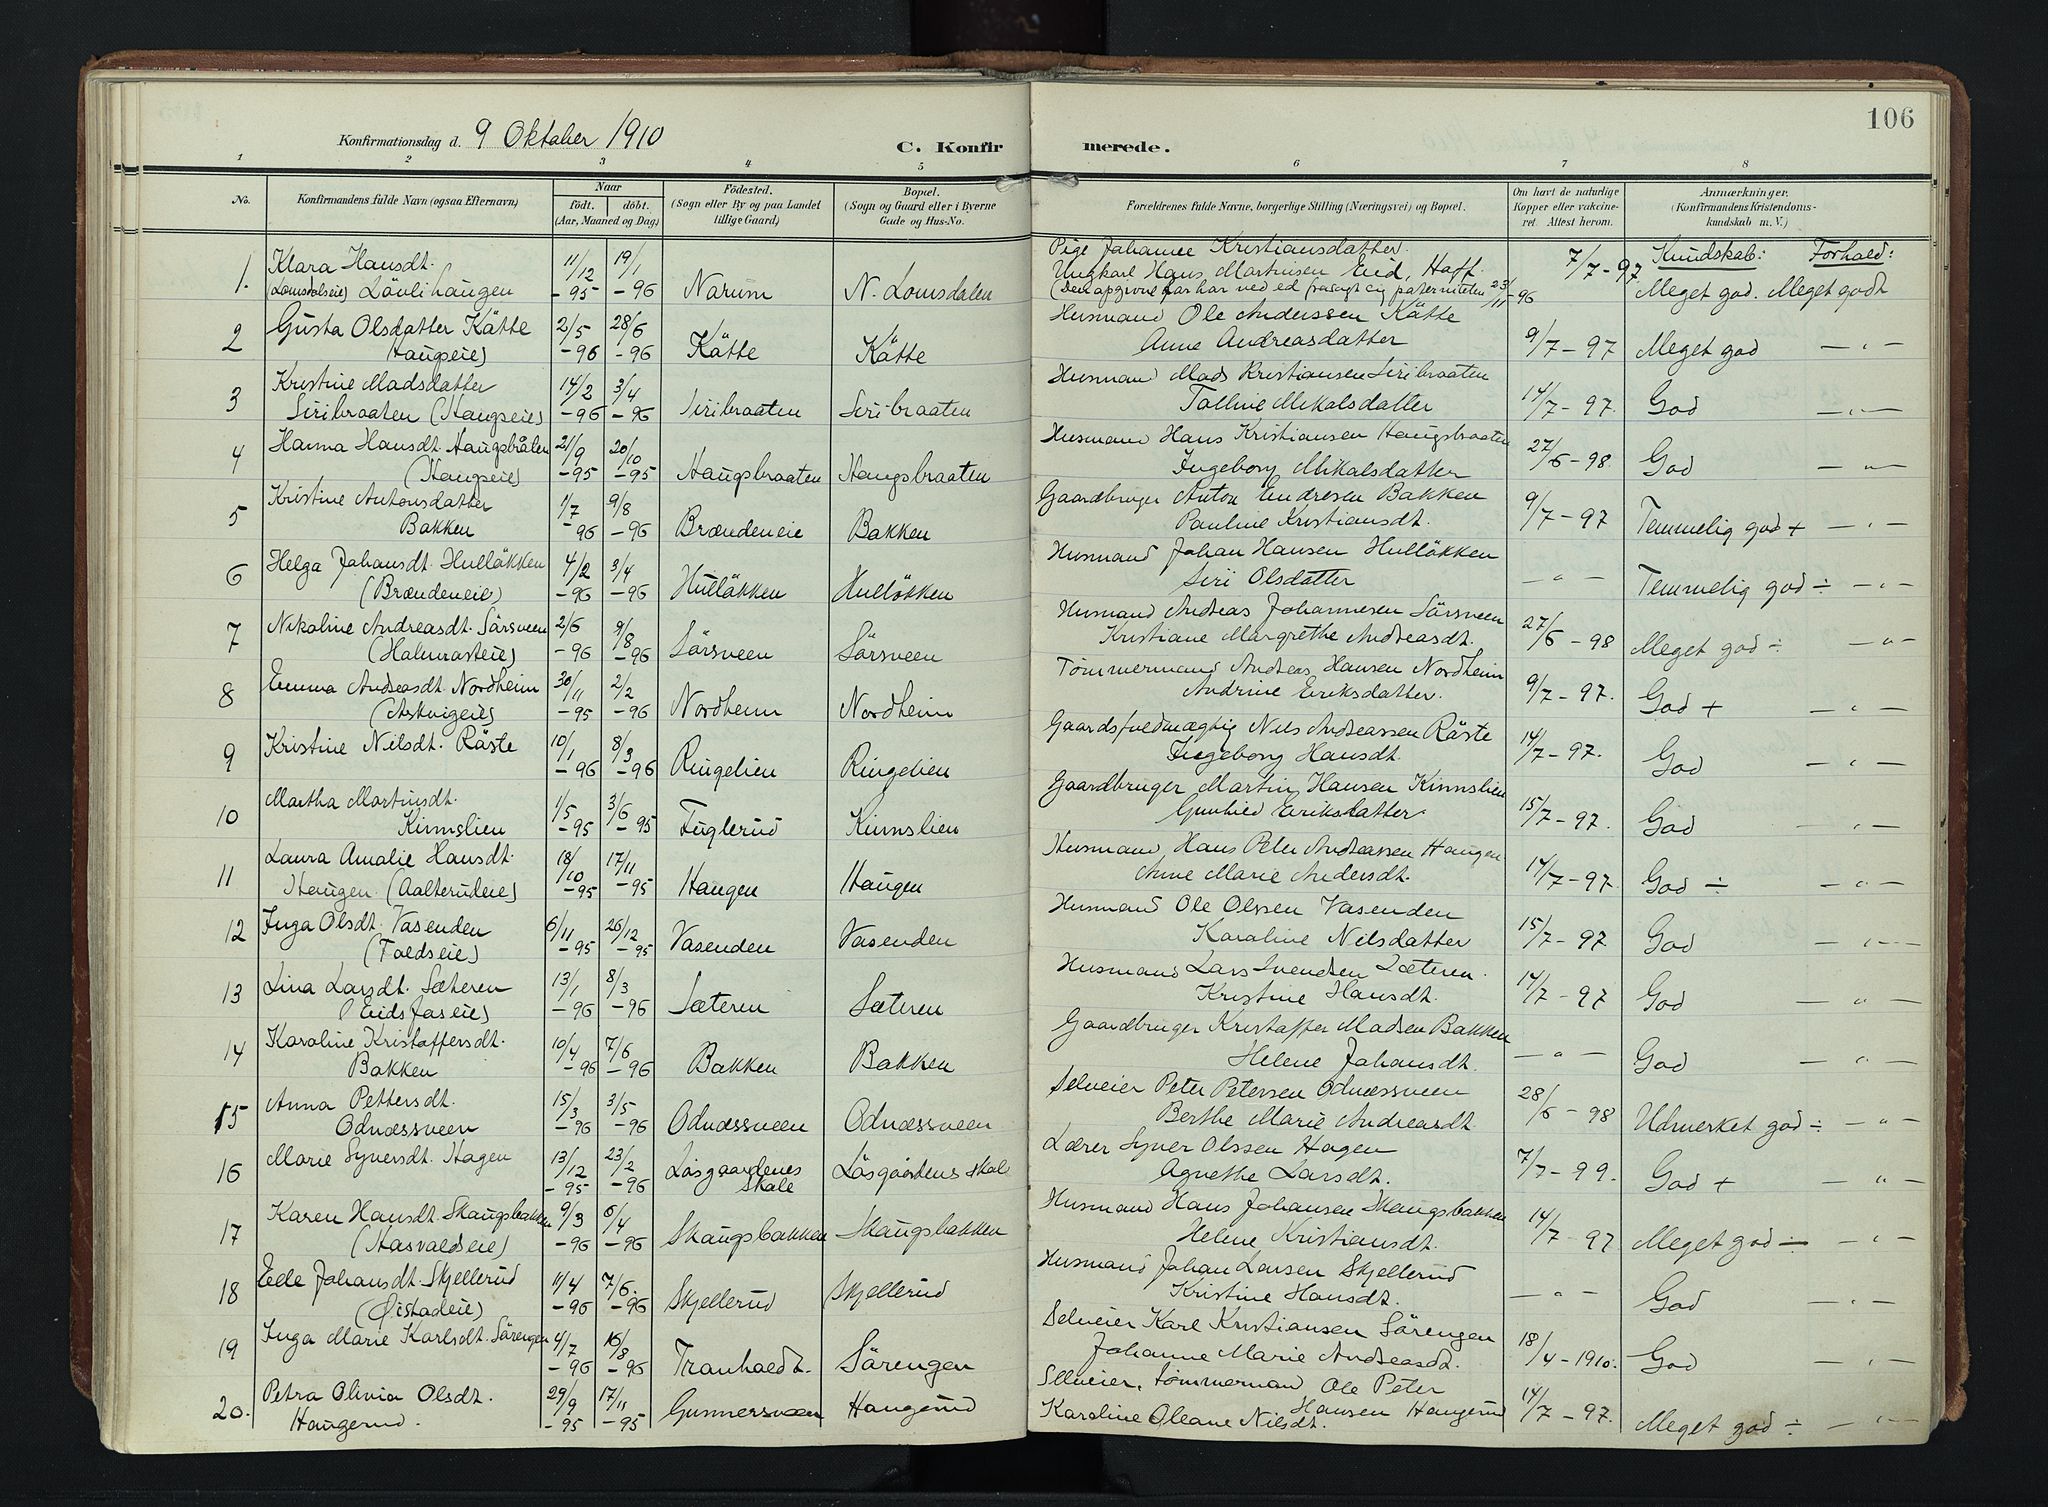 106
Konfirmationsdag d. 9 Oktober 1910
C. Konfirmerede.
1 2 3 4 5 6 7 8
No. Konfirmandens fulde Navn (ogsaa Efternavn) Naar født. døbt. (Aar, Maaned og Dag) Födested. (Sogn eller By og paa Landet tillige Gaard) Bopæl. (Sogn og Gaard eller i Byerne Gade og Hus-No. Forældrenes fulde Navne, borgerlige Stilling (Næringsvei) og Bopæl. Om havt de naturlige Kopper eller vaccineret. Attest herom. Anmærkninger. (Konfirmandens Kristendomskundskab m. V.)
Kundskab: Forhold:
1. Klara Hansdt. 11/12 19/1 Pige Johanne Kristiansdatter. 7/7-97.
(Lomsdalseie) Lövlihaugen -95 -96 Narum N. Lomsdalen Ungkarl Hans Martinsen Eid, Hoff. Meget god. Meget godt
(Den opgivne far har ved ed fralagt sig paterniteten 23/11-96
2 Gusta Olsdatter Kätte 2/5 28/6 Husmand Ole Anderssen Kätte
(Haugseie) -96 -96 Kätte Kätte Anne Andreasdatter 9/7-97 Meget god — " —
3 Kristine Madsdatter 14/2 3/4 Husmand Mads Kristiansen Siribraaten
Siribraaten (Haugseie) -96 -96 Siribraaten Siribraaten Tolline Mikalsdatter 14/7-97. God — " —
4 Hanna Hansdt. Haugsbråten 21/9 20/10 Husmand Hans Kristiansen Haugsbraaten
(Haugseie) -95 -95 Haugsbraaten Haugsbraaten Ingeborg Mikalsdatter 27/6-98. God — " —
5 Kristine Antonsdatter 1/7 9/8 Gaardbruger Anton Endresen Bakken
Bakken -96 -96 Brændeneie Bakken Pauline Kristiansdt. 9/7-97 Temmelig god + — " —
6 Helga Johansdt. Hullökken 4/2 3/4 Husmand Johan Hansen Hullökken
(Brændeneie) -96 -96 Hullökken Hullökken Siri Olsdatter — " — Temmelig god ÷ — " —
7 Nikoline Andreasdt. Sörsveen 2/6 9/8 Husmand Andreas Johannesen Sörsveen
(Halmrasteie) -96 -96 Sörsveen Sörsveen Kristiane Margrethe Andreasdt. 27/6-98 Meget god ÷ — " —
8 Emma Andreasdt. Nordheim 30/11 2/2 Tömmermand Andreas Hansen Nordheim
(Askvigeie) -95 -96 Nordheim Nordheim Andrine Eriksdatter. 9/7-97. God + — " —
9 Kristine Nilsdt. Räste 10/1 8/3 Gaardsfuldmægtig Nils Andreassen Räste
-96 -96 Ringelien Ringelien Ingeborg Hansdt. 14/7-97. God — " —
10 Martha Martinsdt. 1/5 3/6 Gaardbruger Martin Hansen Kinnslien
Kinnslien -95 -95 Fuglerud Kinnslien Gunhild Eriksdatter 15/7-97. God — " —
11 Laura Amalie Hansdt. 18/10 17/11 Husmand Hans Peter Andreassen Haugen
Haugen (Aalterudeie) -95 -95 Haugen Haugen Anne Marie Andersdt. 14/7-97. God ÷ — " —
12 Inga Olsdt. Vasenden 6/11 26/12 Husmand Ole Olssen Vasenden
(Foldseie) -95 -95 Vasenden Vasenden Karoline Nilsdatter 15/7-97 God — " —
13 Lina Larsdt. Sæteren 13/1 8/3 Husmand Lars Svendsen Sæteren.
(Eidsfoseie) -96 -96 Sæteren Sæteren Kristine Hansdt. 14/7-97 God — " —
14 Karoline Kristoffersdt. 10/4 7/6 Gaardbruger Kristoffer Madsen Bakken
Bakken -96 -96 Bakken Bakken Helene Johansdt. — " — God — " —
15 Anna Pettersdt. 15/3 3/5 Selveier Peter Petersen Odnæssveen
Odnæssveen -96 -96 Odnæssveen Odnæssveen Berthe Marie Andreasdt. 28/6-98 Udmerket god ÷ — " —
16 Marie Syversdt. Hagen 13/12 23/2 Lærer Syver Olssen Hagen
-95 -96 Lösgaardenes Skole Lösgårdens skole Agnethe Larsdt. 7/7-99. God + — " —
17 Karen Hansdt. Skaugsbakken 9/3 6/4 Husmand Hans Johansen Skaugsbakken
(Hasvaldseie) -96 -96 Skaugsbakken Skaugsbakken Helene Kristiansdt. 14/7-97 Meget god ÷ — " —
18 Elle Johansdt. Skjellerud 11/4 7/6. Husmand Johan Larsen Skjellerud
(Öistadeie) -96 -96 Skjellerud Skjellerud Kristine Hansdt. — " — God — " —
19 Inga Marie Karlsdt. Sörengen 4/7 16/8 Selveier Karl Kristiansen Sörengen
-96 -96 Tranholdt. Sörengen Johanne Marie Andreasdt. 18/4-1910. God — " —
20. Petra Olivia Olsdt. 29/9 17/11 Selveier, tömmermand Ole Peter
Haugerud. -95 -95 Gunnersveen Haugerud Hansen Haugerud
Karoline Oleane Nilsdt. 14/7-97. Meget god ÷ — " —